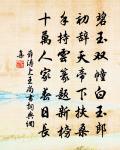 碧玉双幢白玉郎
初辞天帝下扶桑
手持云篆题新榜
十万人家春日长
薛涛上王尚书词典网
集